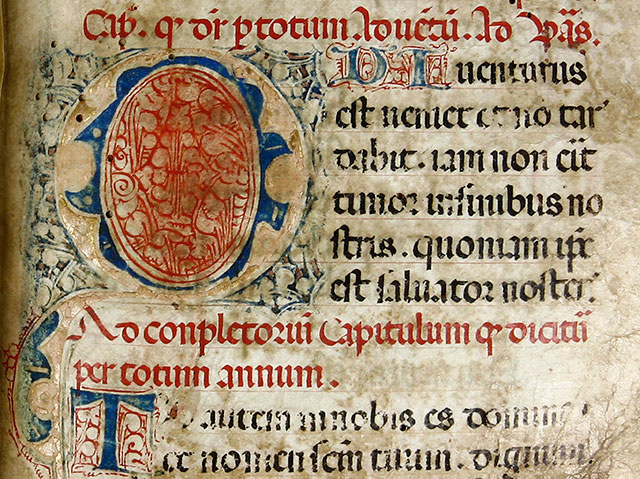 Cap. qͦ dr̄ p totum Aduētū. Ad Vās.
QUI uenturus
est ueniet et nō tar
dabit. iam non eīt
timor infinibus no
stris. quoniam ip̄e
est saluator noster.
Ad conpletoriū Capitulum qͦ dicitū
per totum annum.
Tu autem innobis es domine
et nomen scm̄ tuum.